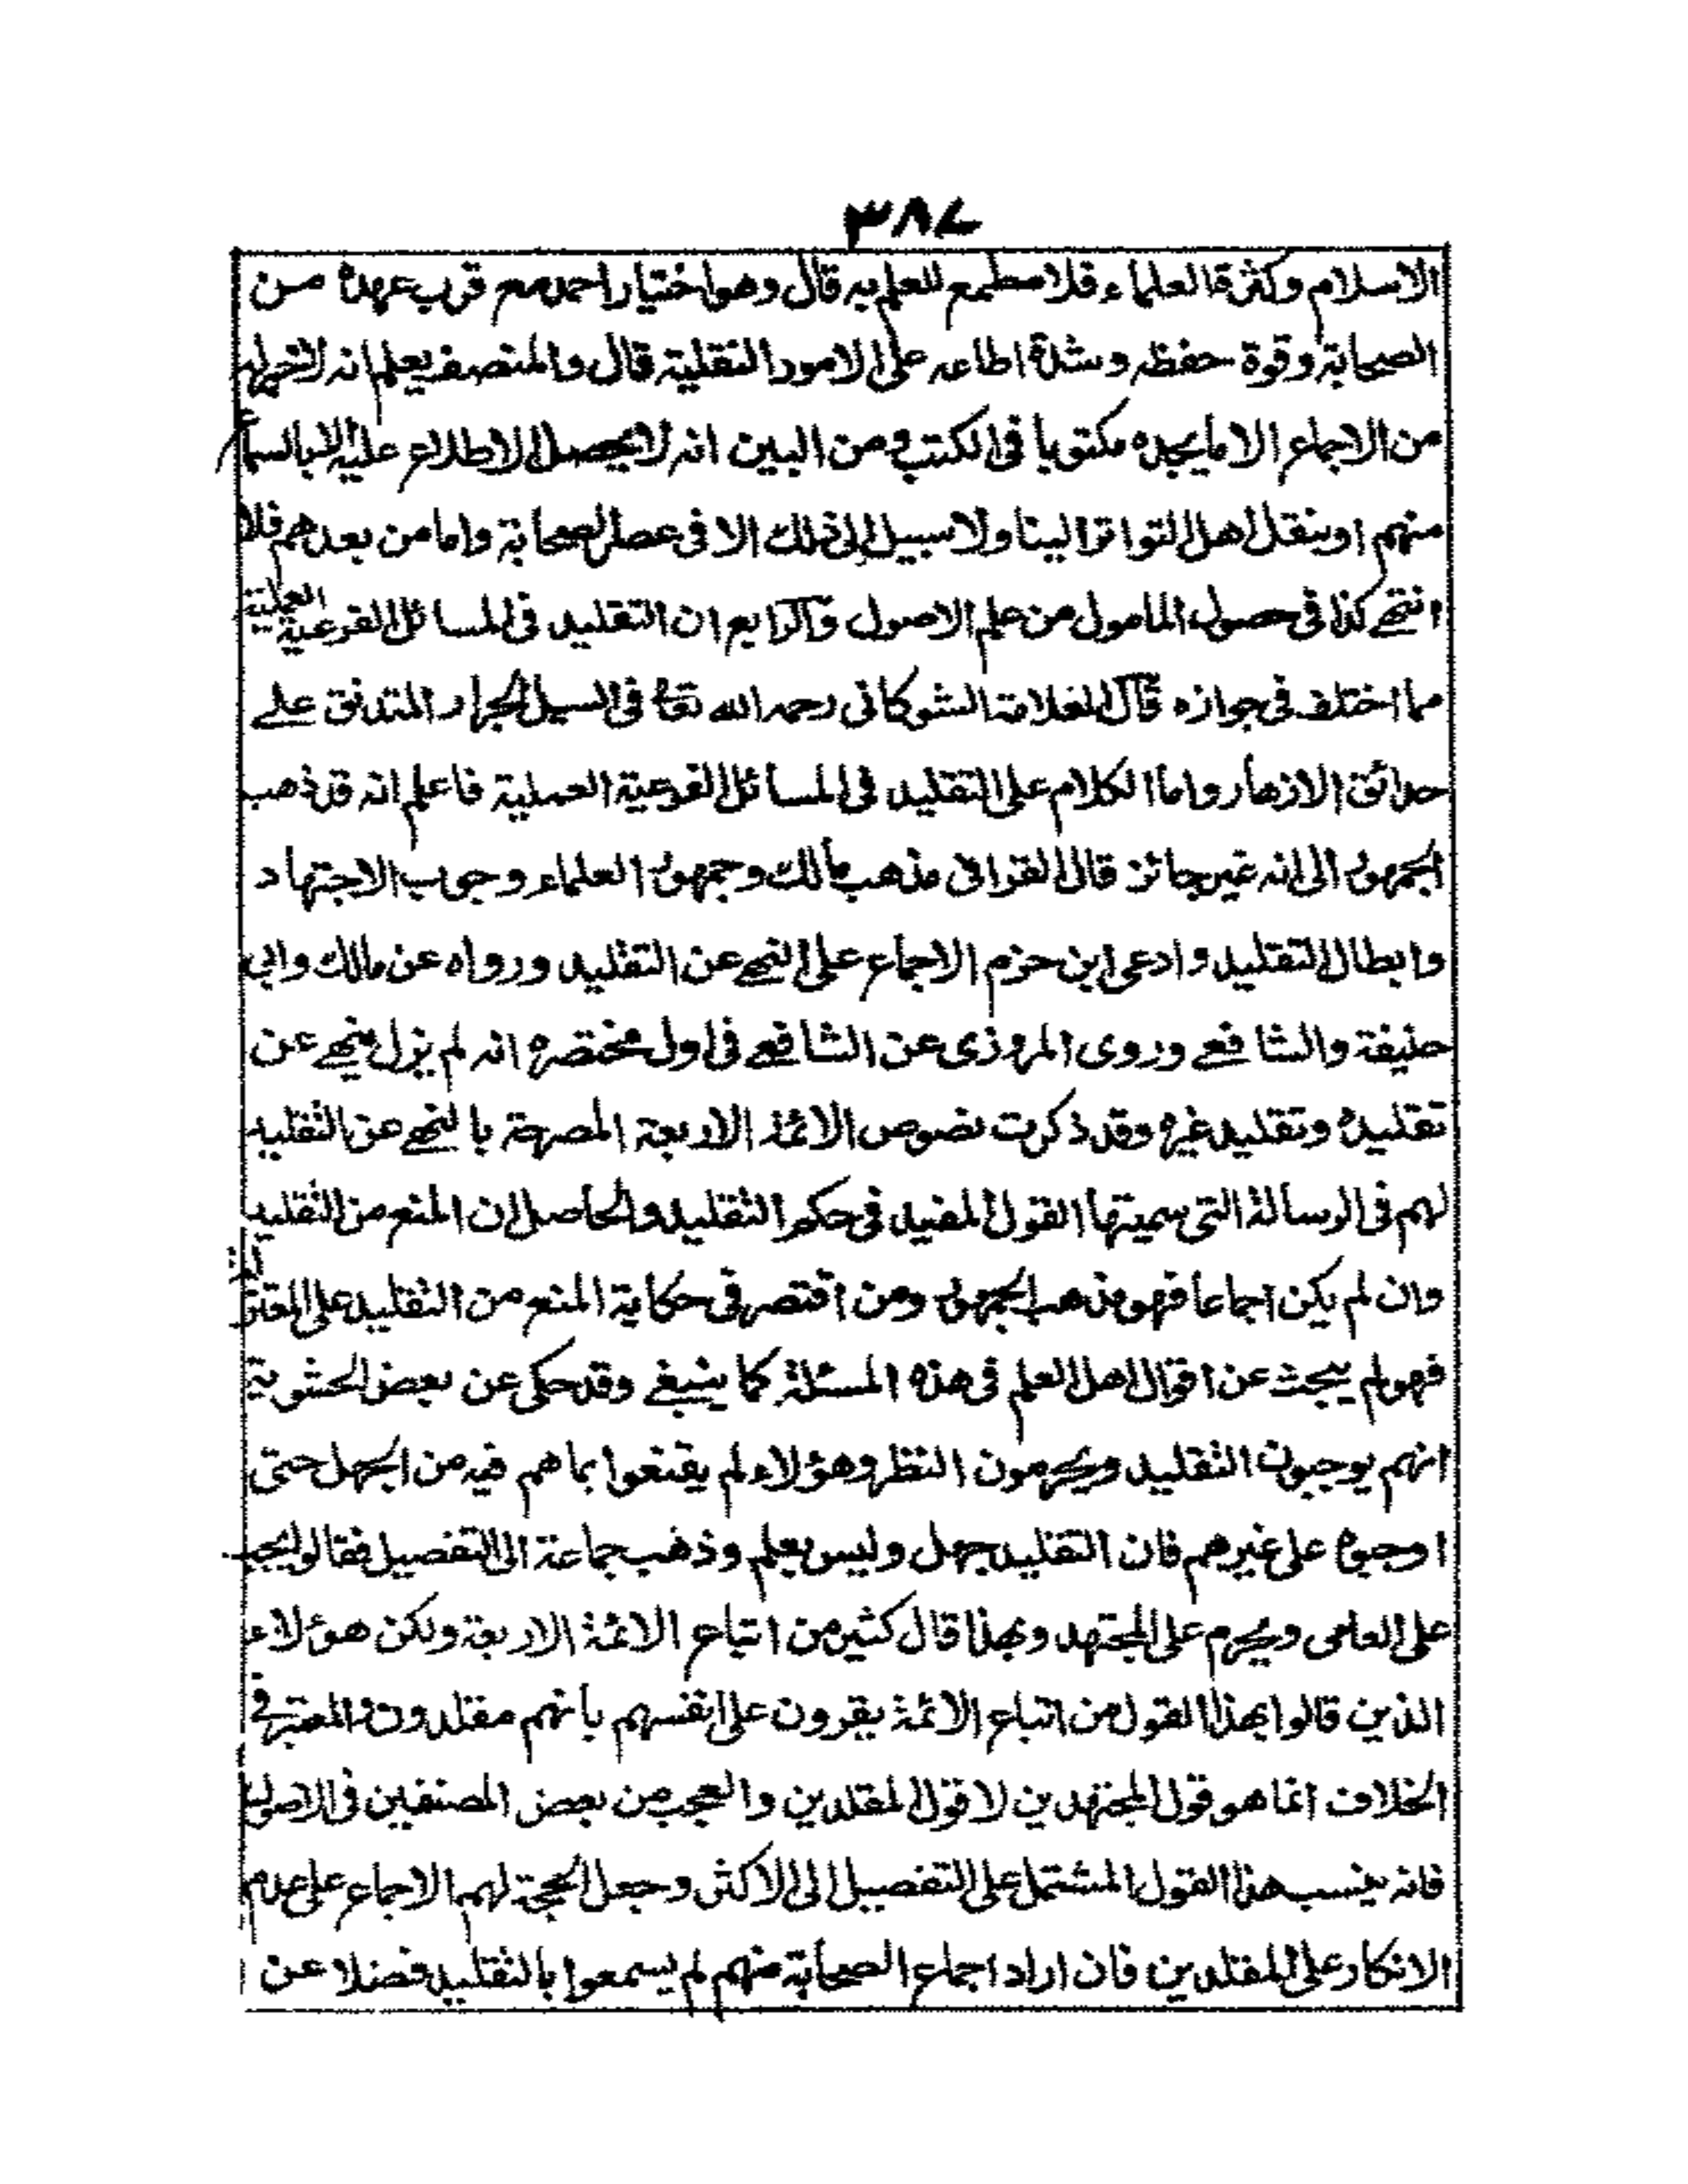 ٣٨٧
الاسلام وكثرة العلماء فلا مطمع للعلم به قال وهو اختيار احمد مع قرب عهده من
الصحابة وقوة حفظه وشدة اطلاعه على الامور النقلية قال والمنصف يعلم انه لا خبر له
من الاجماع الا ما يجده مكتوبا فى الكتب ومن البين انه لا يحصل الاطلاع عليه الا بالسماع
منهم او بنقل اهل التواتر الينا ولا سبيل الى ذلك الا فى عصر الصحابة واما من بعدهم فلا
انتهى كذا فى حصول المامول من علم الاصول والرابع ان التقليد فى المسائل الفرعية العملية
مما اختلف فى جوازه قال العلامة الشوكانى رحمه الله تعالى فى السيل الجرار المتدفق على
حدائق الازهار واما الكلام على التقليد فى المسائل الفرعية العملية فاعلم انه قد ذهب
الجمهور الى انه غير جائز قال القرافى مذهب مالك وجمهور العلماء وجوب الاجتهاد
وابطال التقليد وادعى ابن حزم الاجماع على النهى عن التقليد ورواه عن مالك وابى
حنيفة والشافعى وروى المروزى عن الشافعى فى اول مختصره انه لم يزل ينهى عن
تقليده وتقليد غيره وقد ذكرت نصوص الائمة الاربعة المصرحة بالنهى عن التقليد
لهم فى الرسالة التى سميتها القول المفيد فى حكم التقليد والحاصل ان المنع من التقليد
وان لم يكن اجماعا فهو مذهب الجمهور ومن اقتصر فى حكاية المنع من التقليد على المعتزلة
فهو لم يبحث عن اقوال اهل العلم فى هذه المسئلة كما ينبغى وقد حكى عن بعض الحشوية
انهم يوجبون التقليد ويحرمون النظر وهؤلاء لم يقنعوا بما هم فيه من الجهل حتى
اوجبوه على غيرهم فان التقليد جهل وليس بعلم وذهب جماعة الى التفصيل فقالوا يجب
على العامى ويحرم على المجتهد وبهذا قال كثير من اتباع الائمة الاربعة ولكن هؤلاء
الذين قالوا بهذا القول من اتباع الائمة يقرون على انفسهم بانهم مقلدون والمعتبر فى
الخلاف انما هو قول المجتهدين لا قول المقلدين والعجب من بعض المصنفين فى الاصول
فانه ينسب هذا القول المشتمل على التفصيل الى الاكثر وجعل الحجة لهم الاجماع على عدم
الانكار على المقلدين فان اراد اجماع الصحابة منهم لم يسمعوا بالتقليد فضلا عن